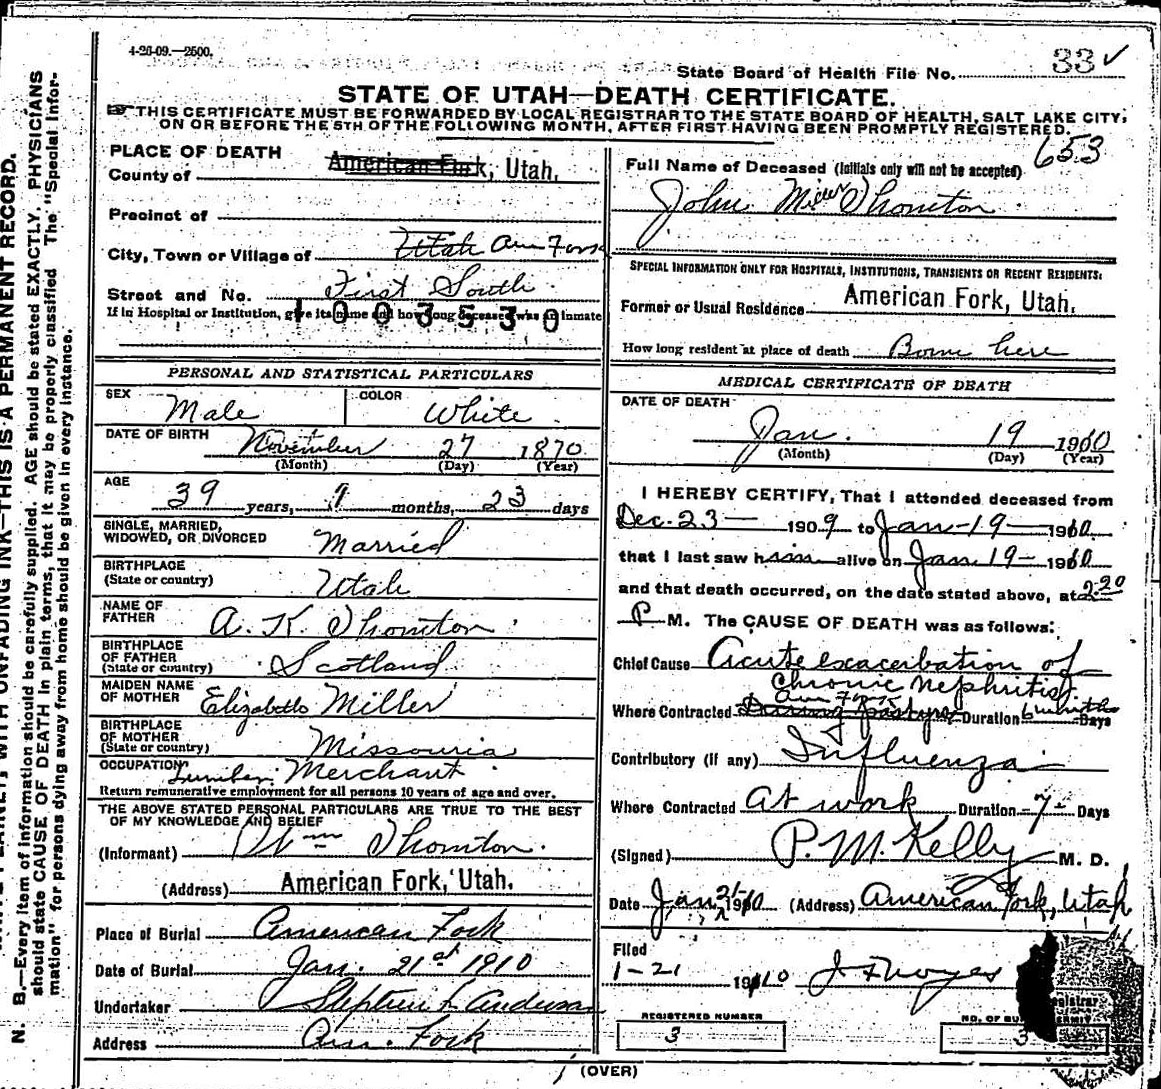 4-26-09.—2500.
State Board of Health File No. 33 ✓
STATE OF UTAH—DEATH CERTIFICATE.
THIS CERTIFICATE MUST BE FORWARDED BY LOCAL REGISTRAR TO THE STATE BOARD OF HEALTH, SALT LAKE CITY,
ON OR BEFORE THE 5TH OF THE FOLLOWING MONTH, AFTER FIRST HAVING BEEN PROMPTLY REGISTERED.
653
PLACE OF DEATH
County of American Fork, Utah.
Precinct of
City, Town or Village of Utah Am Fork
Street and No. First South
If in Hospital or Institution, give its name and how long deceased was an inmate
1003530
PERSONAL AND STATISTICAL PARTICULARS
SEX Male
COLOR White
DATE OF BIRTH November 27 1870
(Month) (Day) (Year)
AGE 39 years, 1 months, 23 days
SINGLE, MARRIED,
WIDOWED, OR DIVORCED Married
BIRTHPLACE
(State or country) Utah
NAME OF
FATHER A. K. Thornton
BIRTHPLACE
OF FATHER
(State or country) Scotland
MAIDEN NAME
OF MOTHER Elizabeth Miller
BIRTHPLACE
OF MOTHER
(State or country) Missouria
OCCUPATION Lumber Merchant
Return remunerative employment for all persons 10 years of age and over.
THE ABOVE STATED PERSONAL PARTICULARS ARE TRUE TO THE BEST
OF MY KNOWLEDGE AND BELIEF
(Informant) Wm Thornton.
(Address) American Fork, Utah.
Place of Burial American Fork
Date of Burial Jan. 21st 1910
Undertaker Stephen L Anderson
Address Am. Fork
Full Name of Deceased (Initials only will not be accepted)
John Miller Thornton
SPECIAL INFORMATION ONLY FOR HOSPITALS, INSTITUTIONS, TRANSIENTS OR RECENT RESIDENTS:
Former or Usual Residence American Fork, Utah.
How long resident at place of death Borne here
MEDICAL CERTIFICATE OF DEATH
DATE OF DEATH
Jan. 19 1910
(Month) (Day) (Year)
I HEREBY CERTIFY, That I attended deceased from
Dec. 23— 1909 to Jan—19— 1910
that I last saw him alive on Jan 19— 1910
and that death occurred, on the date stated above, at 2-20
P M. The CAUSE OF DEATH was as follows:
Chief Cause Acute exacerbation of
Chronic Nephritis.
Am Fork
Where Contracted Duration 6 months Days
Contributory (if any) Influenza
Where Contracted At work Duration -7- Days
(Signed) P. M. Kelly M. D.
Date Jan 21 1910 (Address) American Fork, Utah
Filed
1-21 1910 J F Noyes
Registrar
REGISTERED NUMBER
3
NO. OF BURIAL PERMIT
3
(OVER)
N. B.—Every item of information should be carefully supplied. AGE should be stated EXACTLY. PHYSICIANS
should state CAUSE OF DEATH in plain terms, that it may be properly classified. The "Special Infor-
mation" for persons dying away from home should be given in every instance.
WITH UNFADING INK—THIS IS A PERMANENT RECORD.